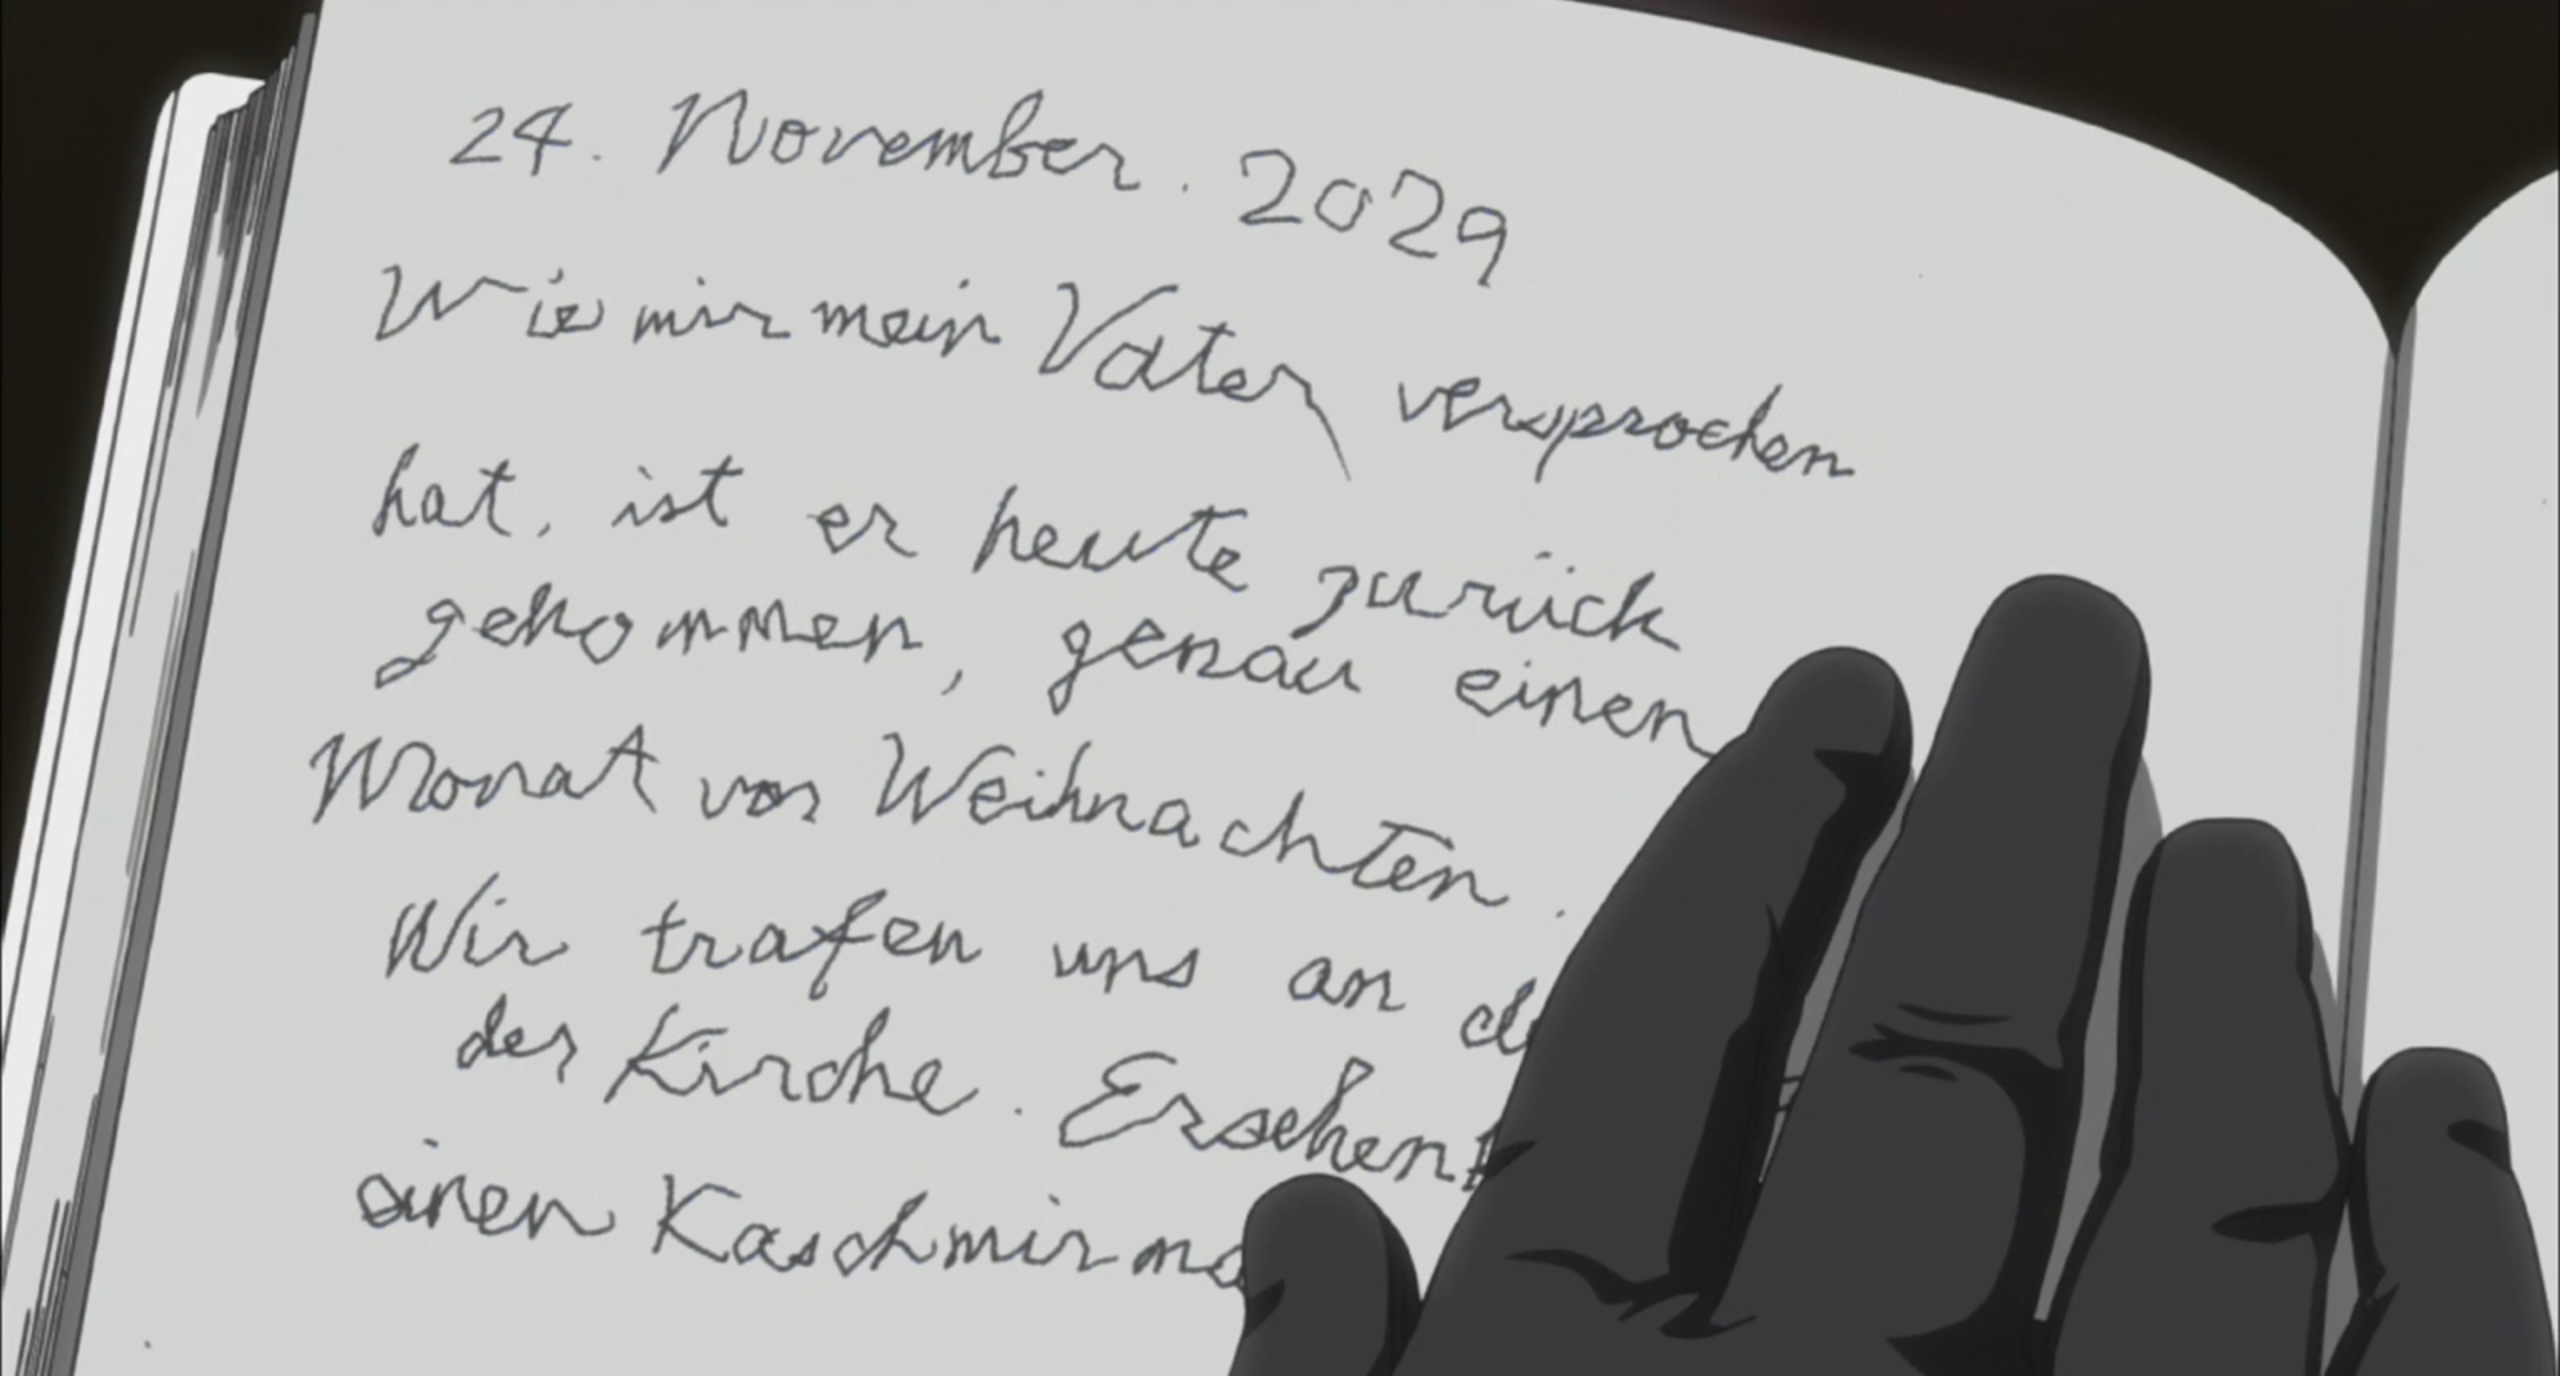 24. November. 2029
Wie mir mein Vater versprochen
hat, ist er heute zurück
gekommen, genau einen
Monat vor Weihnachten.
Wir trafen uns an
der Kirche. Er
einen